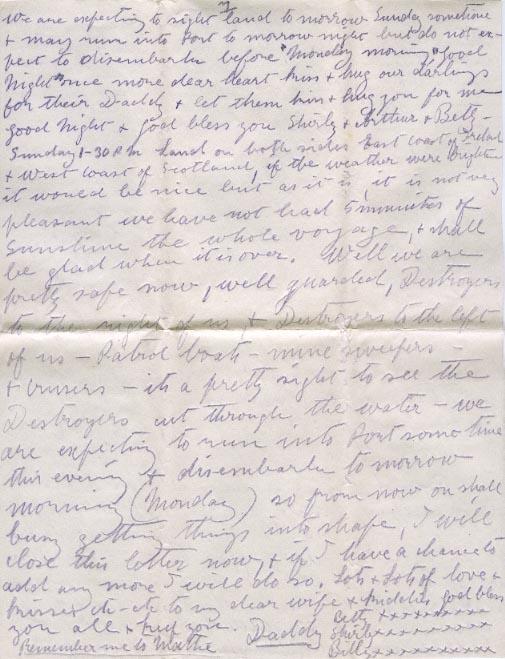 We are expecting to sight land to morrow Sunday sometime
& may run into Port to morrow night but do not ex-
pect to disembark before Monday morning Good
Night once more dear heart kiss & hug our darlings
for their Daddy & let them kiss & hug you for me
Good Night & God bless you Shirly & Arthur & Betty -
Sunday 1-30 P M Land on both sides East coast of Ireland
& West coast of Scotland, if the weather were Brighter
it would be nice but as it is, it is not very
pleasant we have not had 5 minutes of
Sunshine the whole voyage, & shall
be glad when it is over. Well we are
pretty safe now, well guarded, Destroyers
to the right of us & Destroyers to the left
of us - Patrol boats - mine sweepers -
& Cruisers - its a pretty sight to see the
Destroyers cut through the water - we
are expecting to run into Port some time
this evening & disembark to morrow
morning (Monday) so from now on shall
busy getting things into shape, I will
close this letter now, & if I have a chance to
add any more I will do so, Lots & Lots of love &
kisses etc-etc to my dear wife & kiddies God bless
you all & keep you. Daddy
Remember me to
Betty xxxxxxxxxx
Shirly xxxxxxxxxx
Billy xxxxxxxxxx